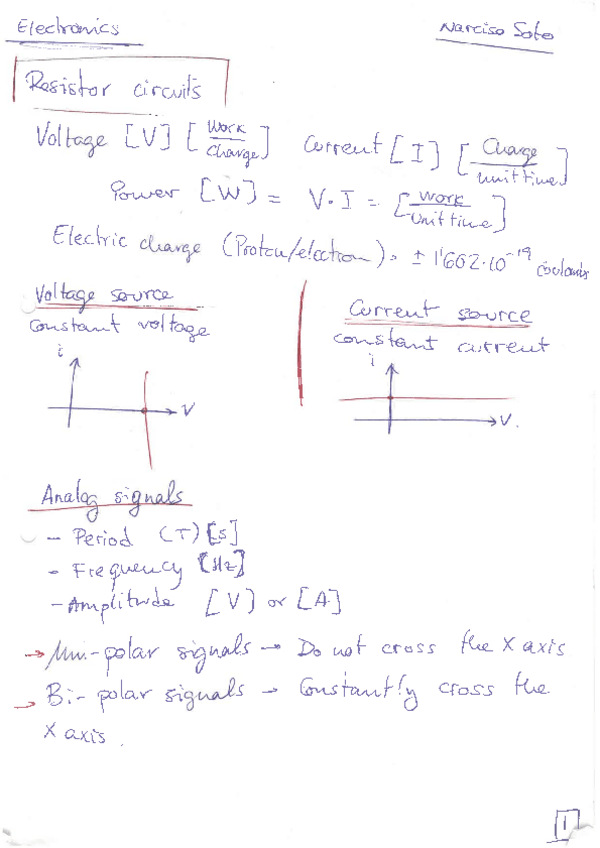 Electronics
Narciso Soto
Resistor circuits
Voltage [V] [Work/Charge] Current [I] [Charge/unit time]
Power [W] = V·I = [Work/Unit time]
Electric charge (Proton/electron) = ± 1'602·10⁻¹⁹ coulombs
Voltage source
constant voltage
i
V
Current source
constant current
i
V.
Analog signals
- Period (T) [s]
- Frequency [Hz]
- Amplitude [V] or [A]
→ Uni-polar signals → Do not cross the X axis
→ Bi-polar signals → Constantly cross the
X axis.
1